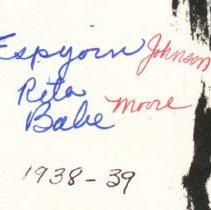 Espjorn Johnson
Rita
Babe Moore
1938-39